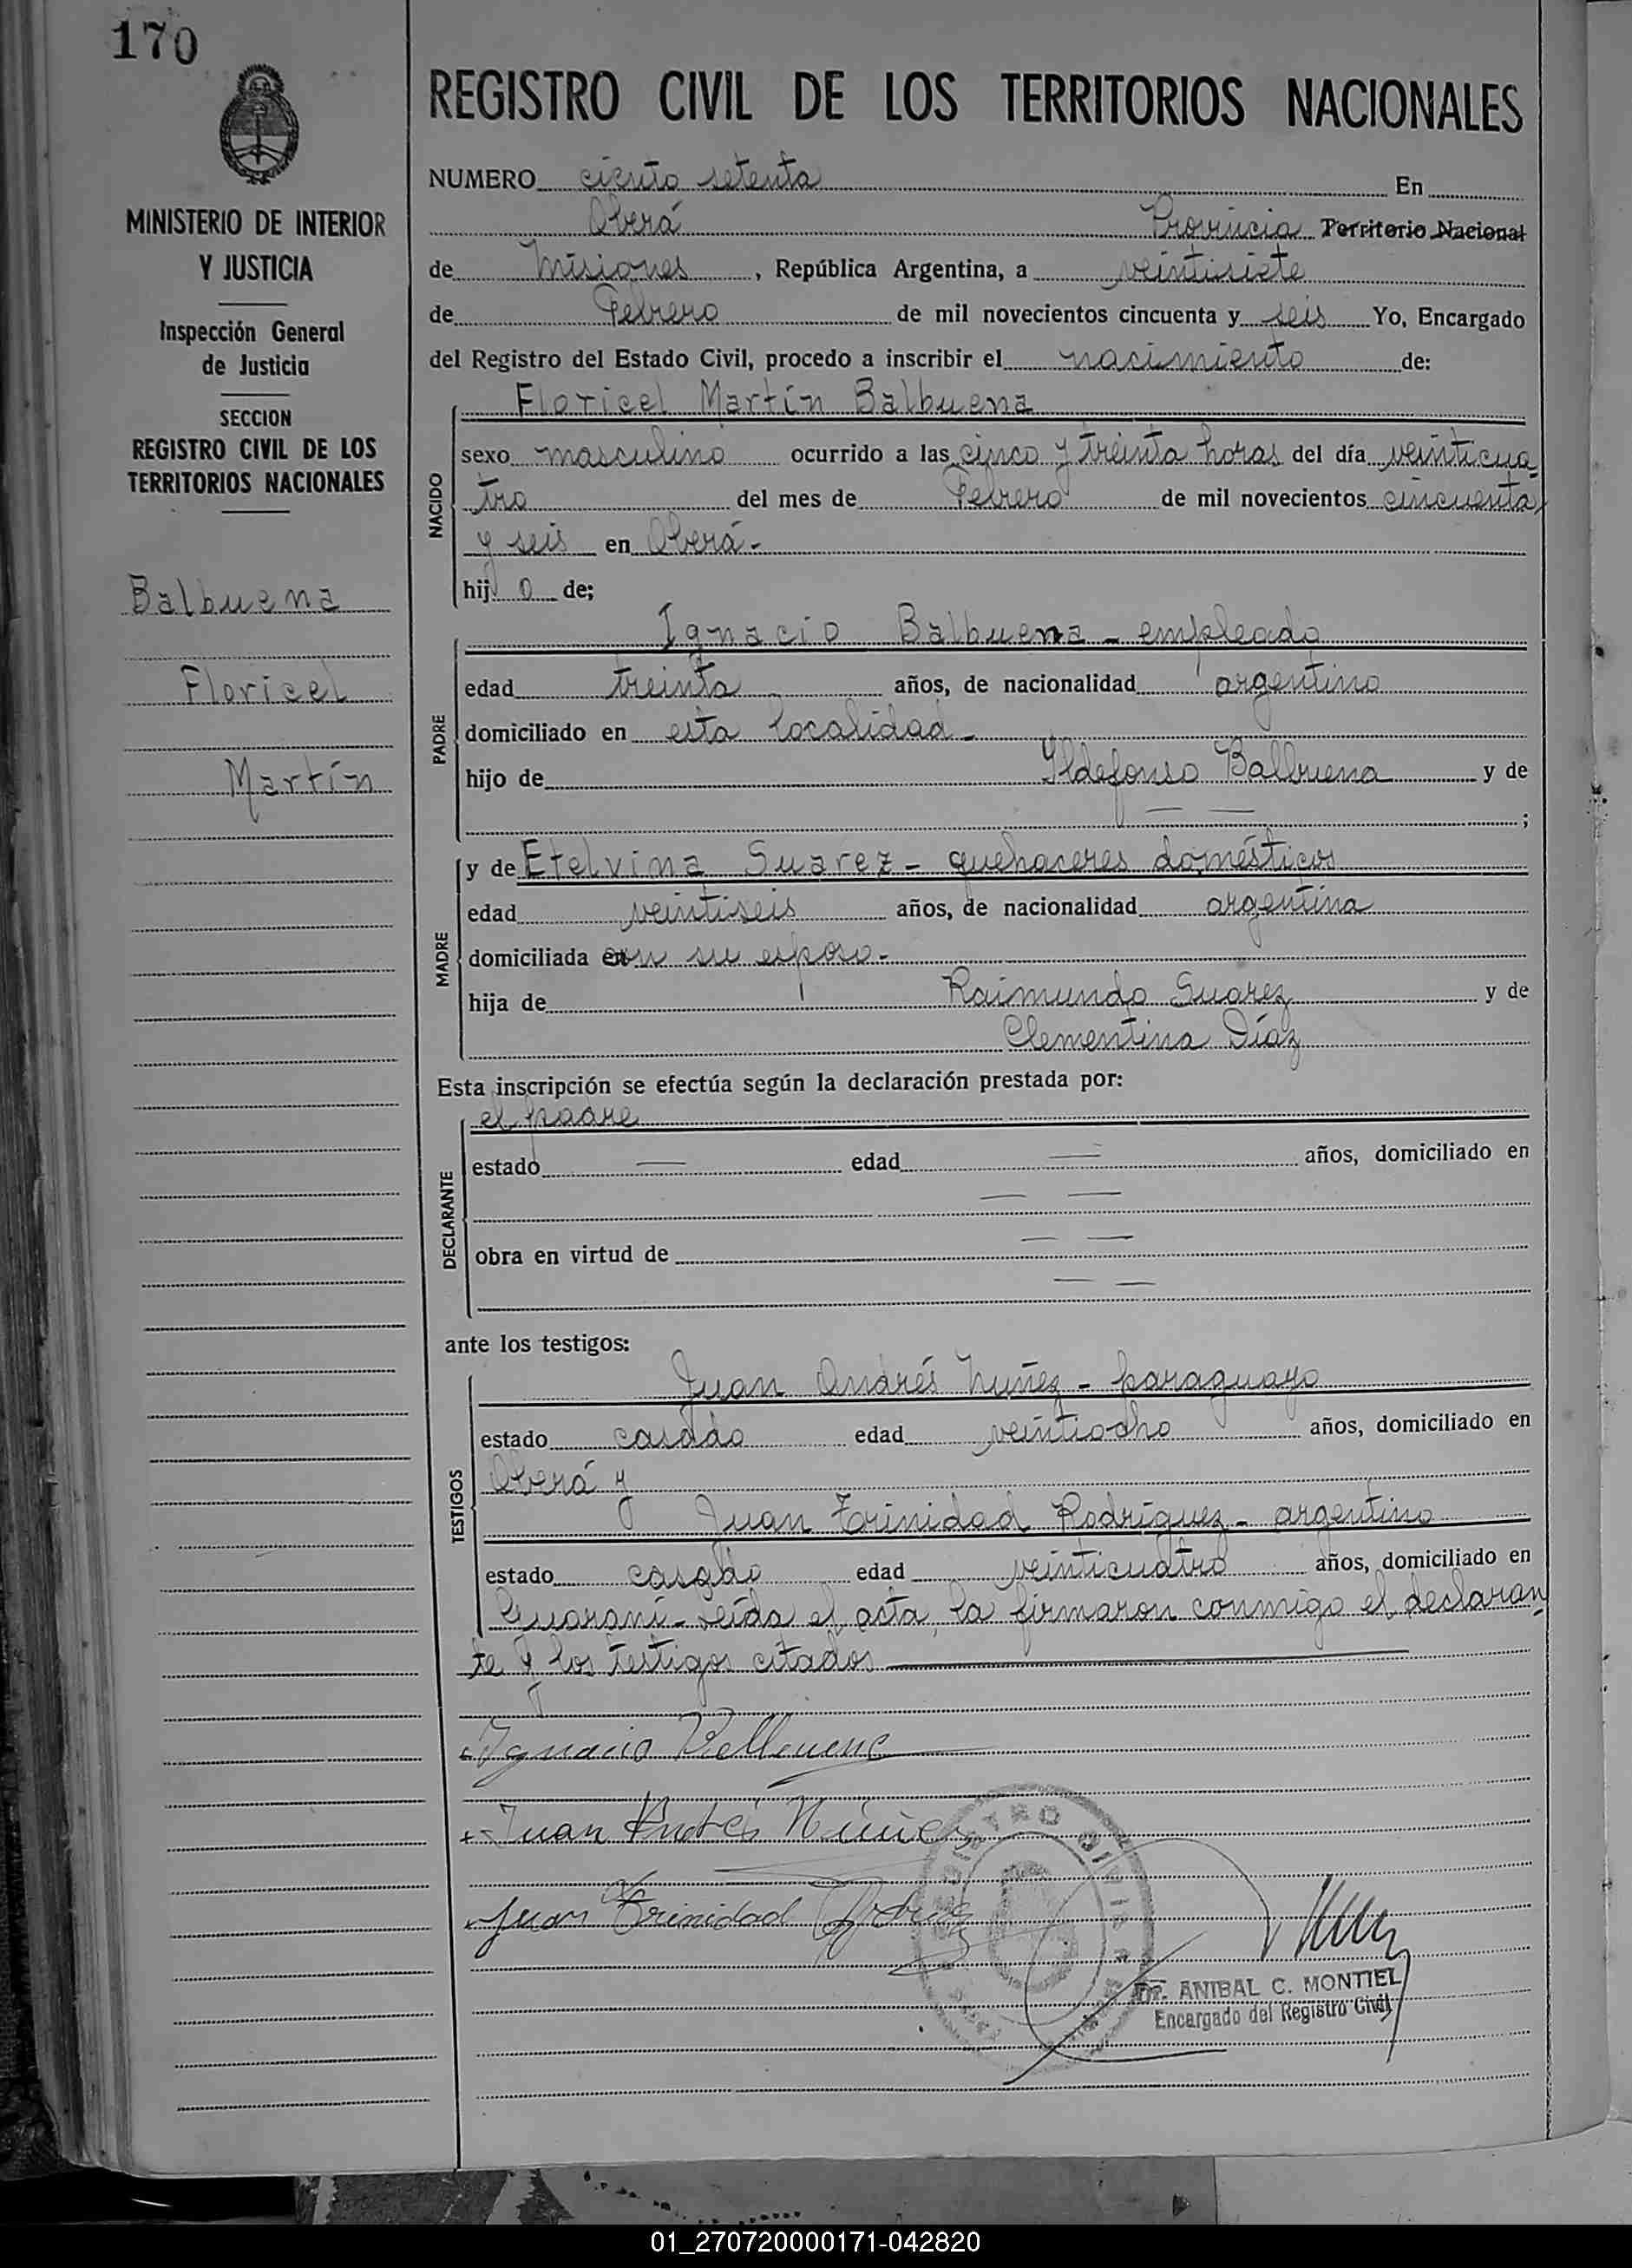 170
MINISTERIO DE INTERIOR
Y JUSTICIA
Inspección General
de Justicia
SECCION
REGISTRO CIVIL DE LOS
TERRITORIOS NACIONALES
Balbuena
Floricel
Martín
REGISTRO CIVIL DE LOS TERRITORIOS NACIONALES
NUMERO ciento setenta En
Oberá Provincia Territorio Nacional
de Misiones, República Argentina, a veintisiete
de Febrero de mil novecientos cincuenta y seis Yo, Encargado
del Registro del Estado Civil, procedo a inscribir el nacimiento de:
Floricel Martín Balbuena
NACIDO
sexo masculino ocurrido a las cinco y treinta horas del día veinticua-
tro del mes de Febrero de mil novecientos cincuenta
y seis en Oberá-
hijo de;
Ignacio Balbuena - empleado
PADRE
edad treinta años, de nacionalidad argentino
domiciliado en esta localidad-
hijo de Ildefonso Balbuena y de
— — ;
MADRE
y de Etelvina Suarez - quehaceres domésticos
edad veintiseis años, de nacionalidad argentina
domiciliada con su esposo-
hija de Raimundo Suarez y de
Clementina Díaz
Esta inscripción se efectúa según la declaración prestada por:
el padre
DECLARANTE
estado — edad — años, domiciliado en
— —
obra en virtud de — —
— —
ante los testigos:
Juan Andrés Nuñez - paraguayo
TESTIGOS
estado casado edad veintiocho años, domiciliado en
Oberá y
Juan Trinidad Rodríguez - argentino
estado casado edad veinticuatro años, domiciliado en
Guaraní- Leída el acta, la firmaron conmigo el declaran
te y los testigos citados
Ignacio Balbuena
Juan Andrés Núñez
Juan Trinidad
REGISTRO CIVIL
Dr. ANIBAL C. MONTIEL
Encargado del Registro Civil
01_270720000171-042820